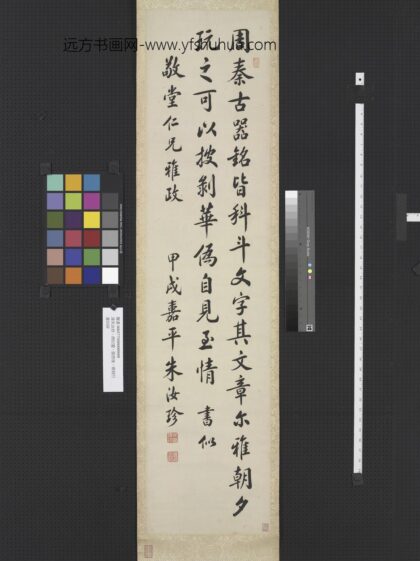 远方书画网-www.yfshuhua.com
周秦古器銘皆科斗文字其文章尔雅朝夕
玩之可以披剥華偽自見至情 書似
敬堂仁兄雅政
甲戌嘉平朱汝珍